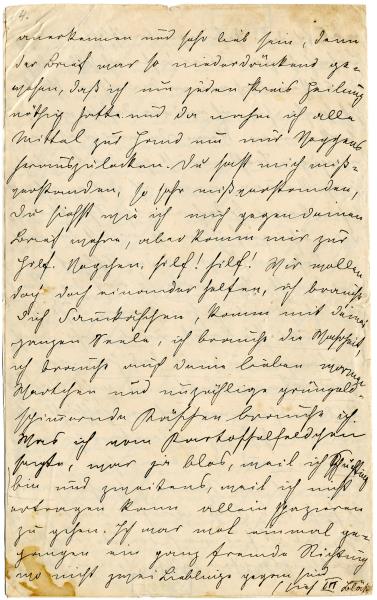 4.
anerkennen und sehr lieb sein, denn
der Brief war so niederdrückend ge-
wesen, daß ich um jeden Preis Heilung
nöthig hatte und da nahm ich alle
Mittel zur Hand um nur
herauszulocken. Du hast mich miß-
verstanden, so sehr mißverstanden,
Du siehst wie ich mich gegen deinen
Brief wehre, aber komm mir zur
Hilf. hilf! hilf! Wir wollen
doch einander helfen, ich brauche
Dich komm mit deiner
ganzen Seele, ich brauche die Wahrheit,
ich brauche auch deine lieben warmen
und unzählige
schimmernde brauche ich.
Was ich vom Kartoffelfeldchen
sagte, war ja blos, weil ich
bin und zweitens, weil ich nicht
ertragen kann allein spazieren
zu gehen. Ich war mal einmal ge-
gangen ein ganz fremde Richtung
wo nicht zwei Lieblinge gegangen sind
III